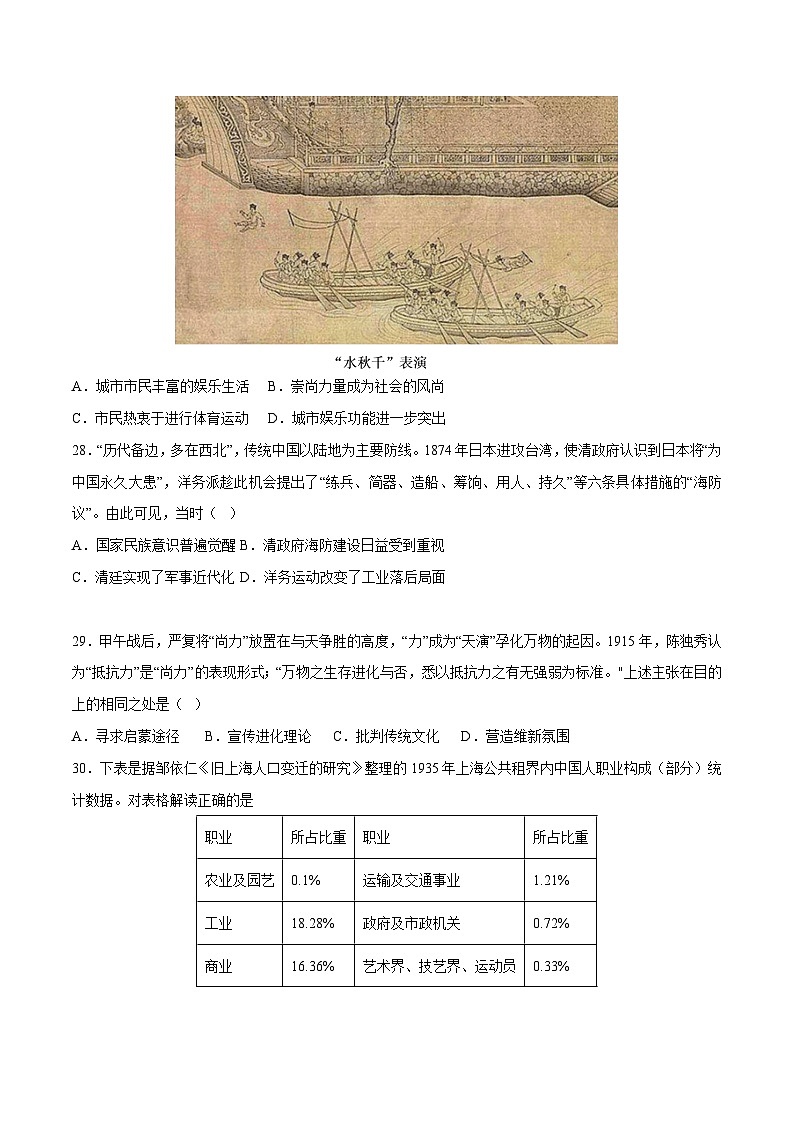 “水秋千”表演
A．城市市民丰富的娱乐生活 B．崇尚力量成为社会的风尚
C．市民热衷于进行体育运动 D．城市娱乐功能进一步突出
28．“历代备边，多在西北”，传统中国以陆地为主要防线。1874年日本进攻台湾，使清政府认识到日本将“为
中国永久大患”，洋务派趁此机会提出了“练兵、简器、造船、筹饷、用人、持久”等六条具体措施的“海防
议”。由此可见，当时（ ）
A．国家民族意识普遍觉醒 B．清政府海防建设日益受到重视
C．清廷实现了军事近代化 D．洋务运动改变了工业落后局面
29．甲午战后，严复将“尚力”放置在与天争胜的高度，“力”成为“天演”孕化万物的起因。1915年，陈独秀认
为“抵抗力”是“尚力”的表现形式；“万物之生存进化与否，悉以抵抗力之有无强弱为标准。"上述主张在目的
上的相同之处是（ ）
A．寻求启蒙途径 B．宣传进化理论 C．批判传统文化 D．营造维新氛围
30．下表是据邹依仁《旧上海人口变迁的研究》整理的1935年上海公共租界内中国人职业构成（部分）统
计数据。对表格解读正确的是
职业 所占比重 职业 所占比重
农业及园艺 0.1% 运输及交通事业 1.21%
工业 18.28% 政府及市政机关 0.72%
商业 16.36% 艺术界、技艺界、运动员 0.33%